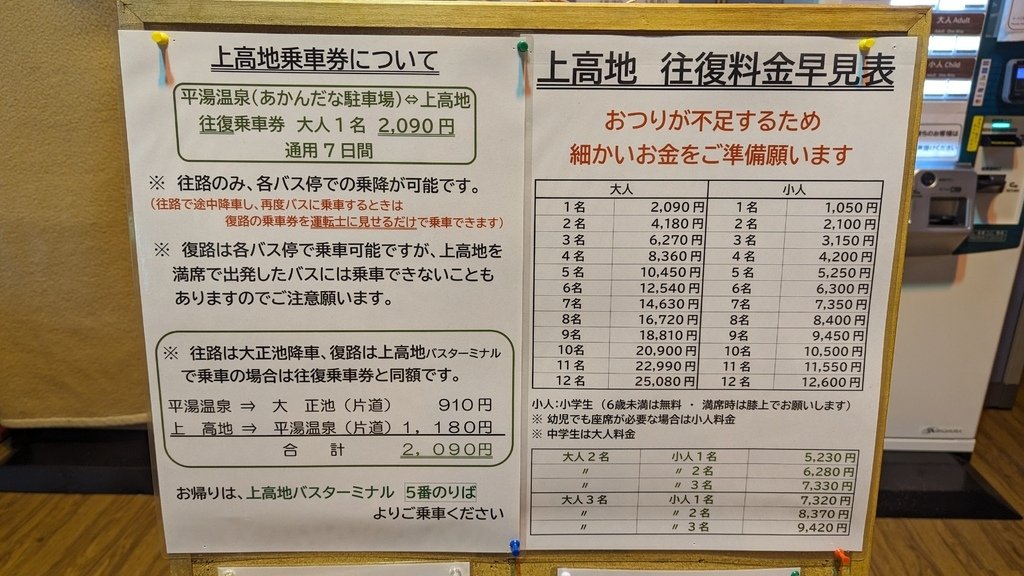 上高地乗車券について
平湯温泉(あかんだな駐車場)⇔上高地
往復乗車券 大人1名 2,090円
通用7日間
※ 往路のみ、各バス停での乗降が可能です。
(往路で途中降車し、再度バスに乗車するときは
復路の乗車券を運転士に見せるだけで乗車できます)
※ 復路は各バス停で乗車可能ですが、上高地を
満席で出発したバスには乗車できないことも
ありますのでご注意願います。
※ 往路は大正池降車、復路は上高地バスターミナル
で乗車の場合は往復乗車券と同額です。
平湯温泉 ⇒ 大 正池(片道) 910円
上 高地 ⇒ 平湯温泉(片道) 1,180円
合 計 2,090円
お帰りは、上高地バスターミナル 5番のりば
よりご乗車ください
上高地 往復料金早見表
おつりが不足するため
細かいお金をご準備願います
大人 小人
1名 2,090円 1名 1,050円
2名 4,180円 2名 2,100円
3名 6,270円 3名 3,150円
4名 8,360円 4名 4,200円
5名 10,450円 5名 5,250円
6名 12,540円 6名 6,300円
7名 14,630円 7名 7,350円
8名 16,720円 8名 8,400円
9名 18,810円 9名 9,450円
10名 20,900円 10名 10,500円
11名 22,990円 11名 11,550円
12名 25,080円 12名 12,600円
小人:小学生(6歳未満は無料 ・ 満席時は膝上でお願いします)
※ 幼児でも座席が必要な場合は小人料金
※ 中学生は大人料金
大人2名 小人1名 5,230円
〃 〃 2名 6,280円
〃 〃 3名 7,330円
大人3名 小人1名 7,320円
〃 〃 2名 8,370円
〃 〃 3名 9,420円
大人 Adult
小人 Child